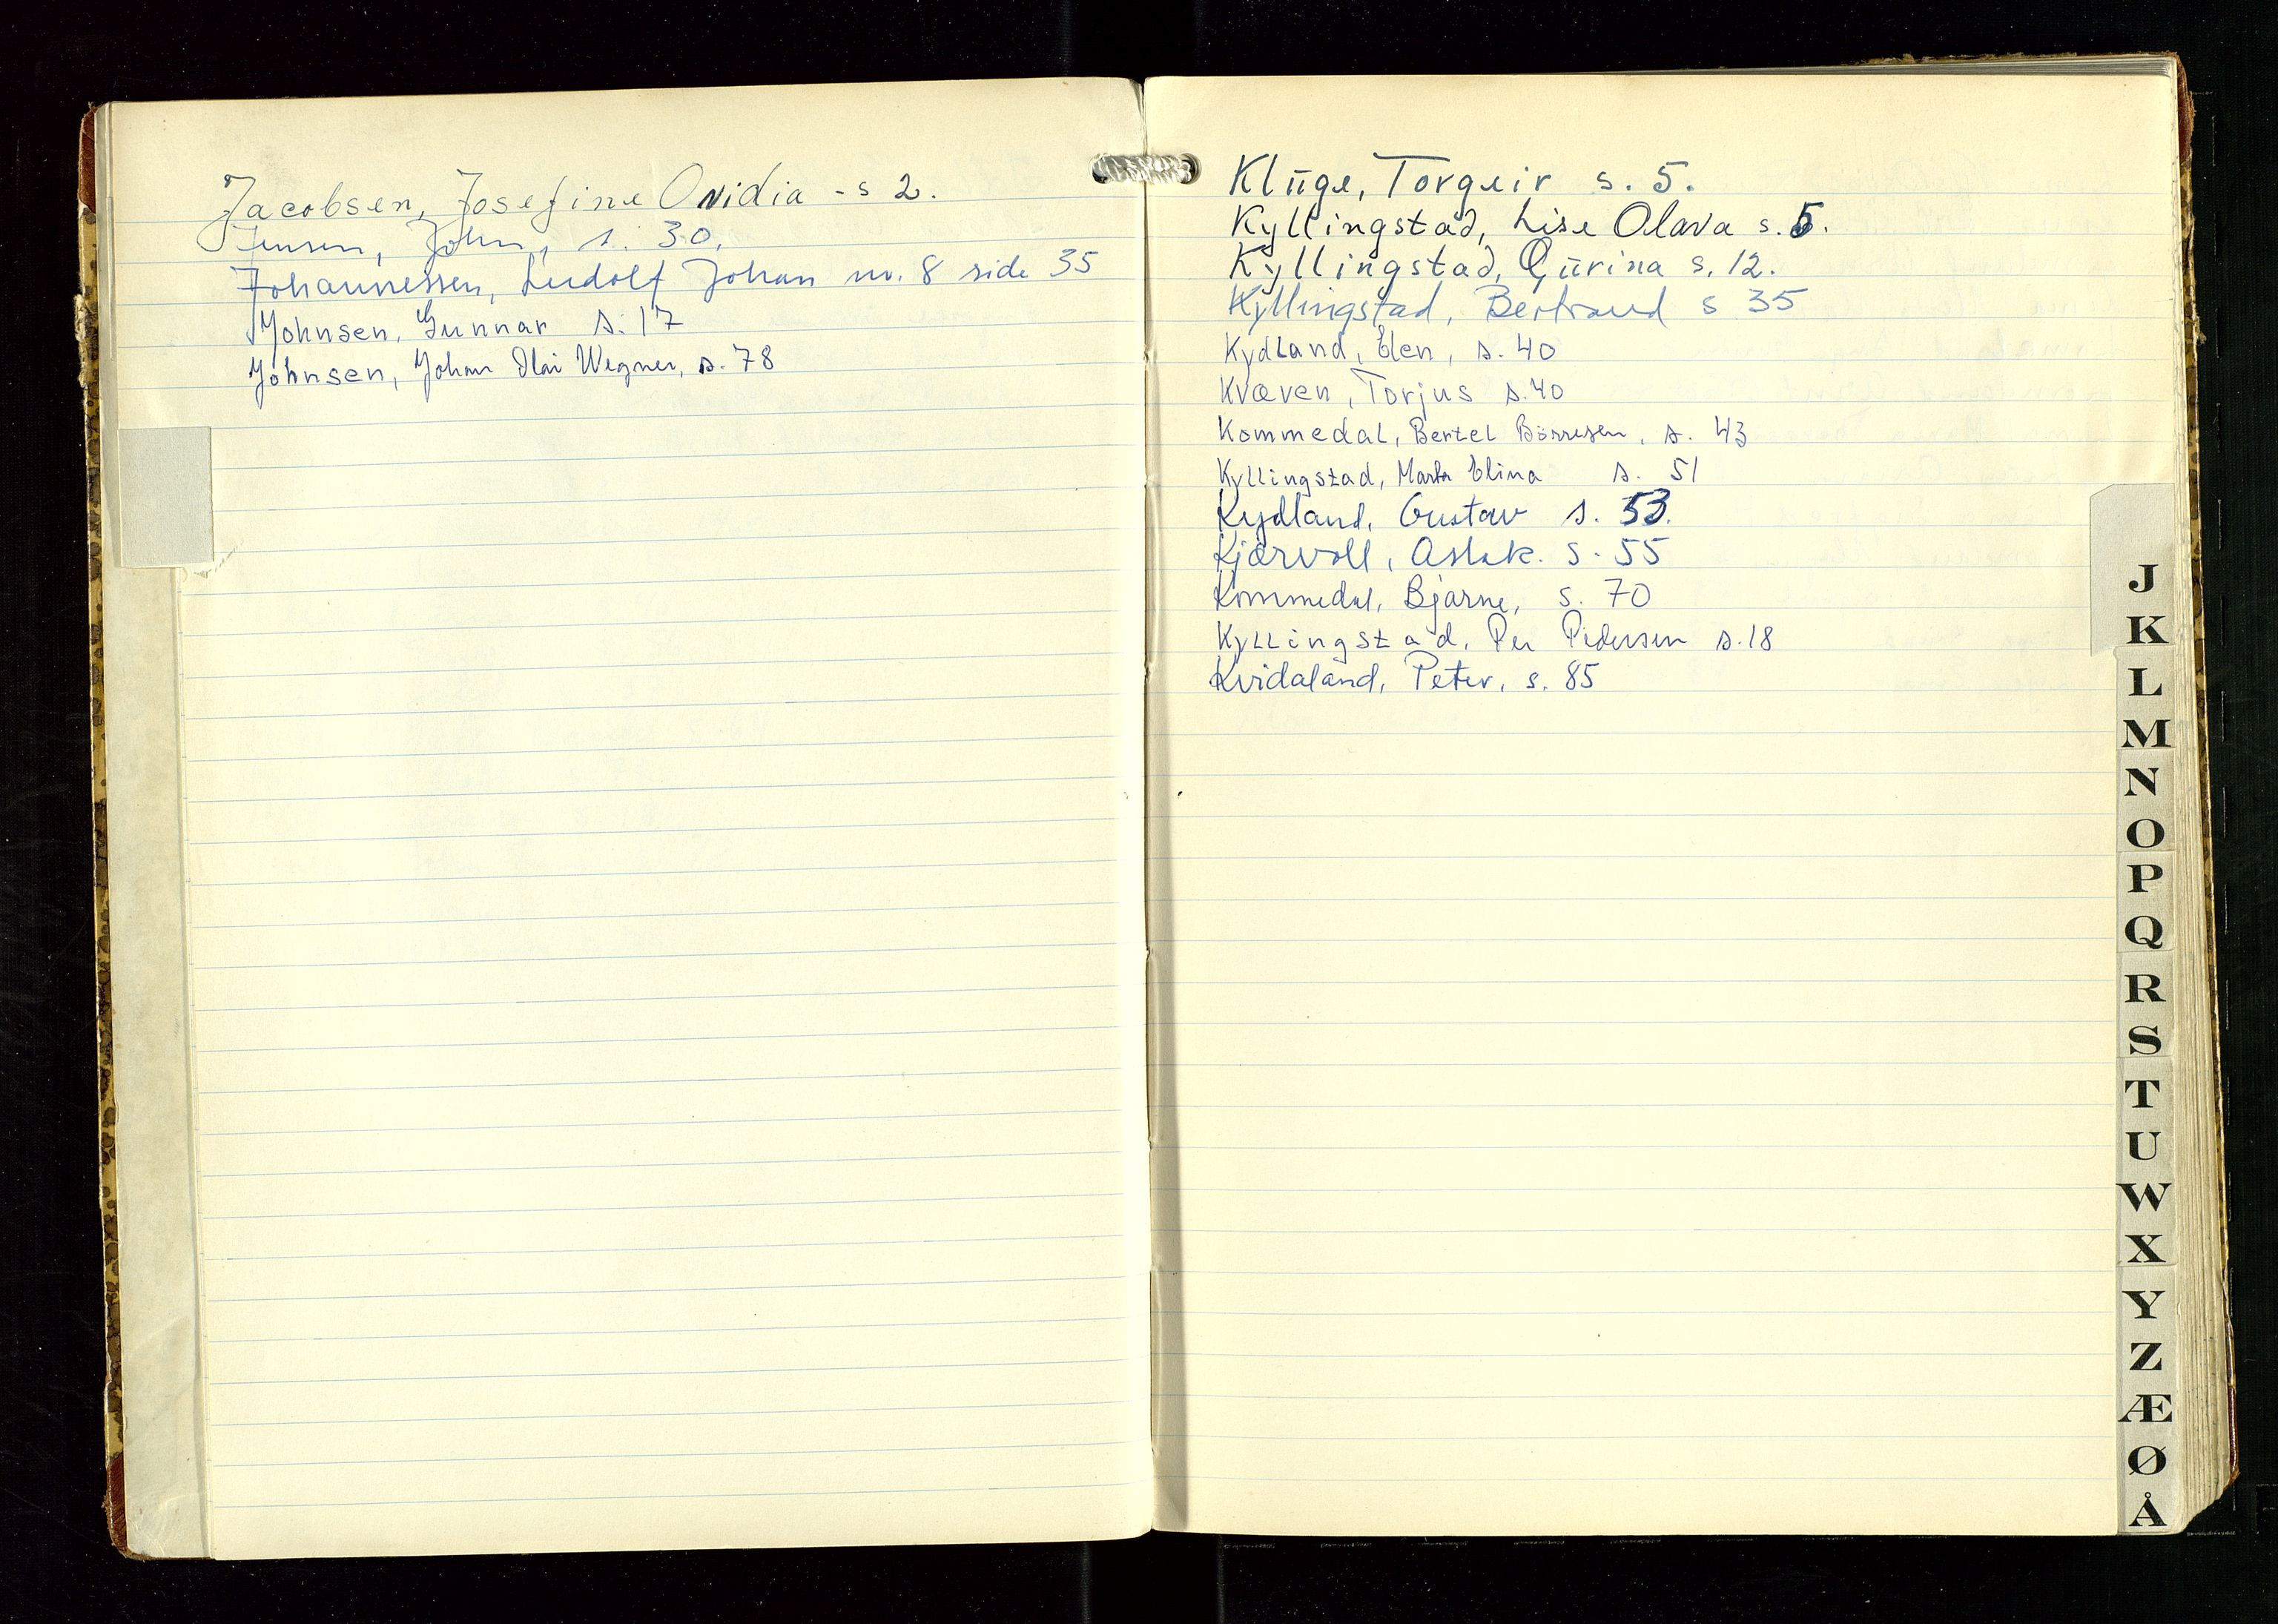 Jacobsen, Josefine Ovidia - s 2.
Jensen, John, s. 30.
Johannessen, Ludolf Johan nr. 8 side 35
Johnsen, Gunnar s. 17
Johnsen, Johan Olai Wegner, s. 78
Klüge, Torgeir s. 5.
Kyllingstad, Lise Olava s. 5.
Kyllingstad, Gürina s. 12.
Kyllingstad, Bertrand s 35
Kydland, Elen, s. 40
Kvæven, Torjus s. 40
Kommedal, Bertel Börresen, s. 43
Kyllingstad, Marta Elina s. 51
Kydland, Gustav s. 53.
Kjærvoll, Aslak. s. 55
Kommedal, Bjarne, s. 70
Kyllingstad, Per Pedersen s. 18
Kvidaland, Peter, s. 85
J
K
L
M
N
O
P
Q
R
S
T
U
W
X
Y
Z
Æ
Ø
Å